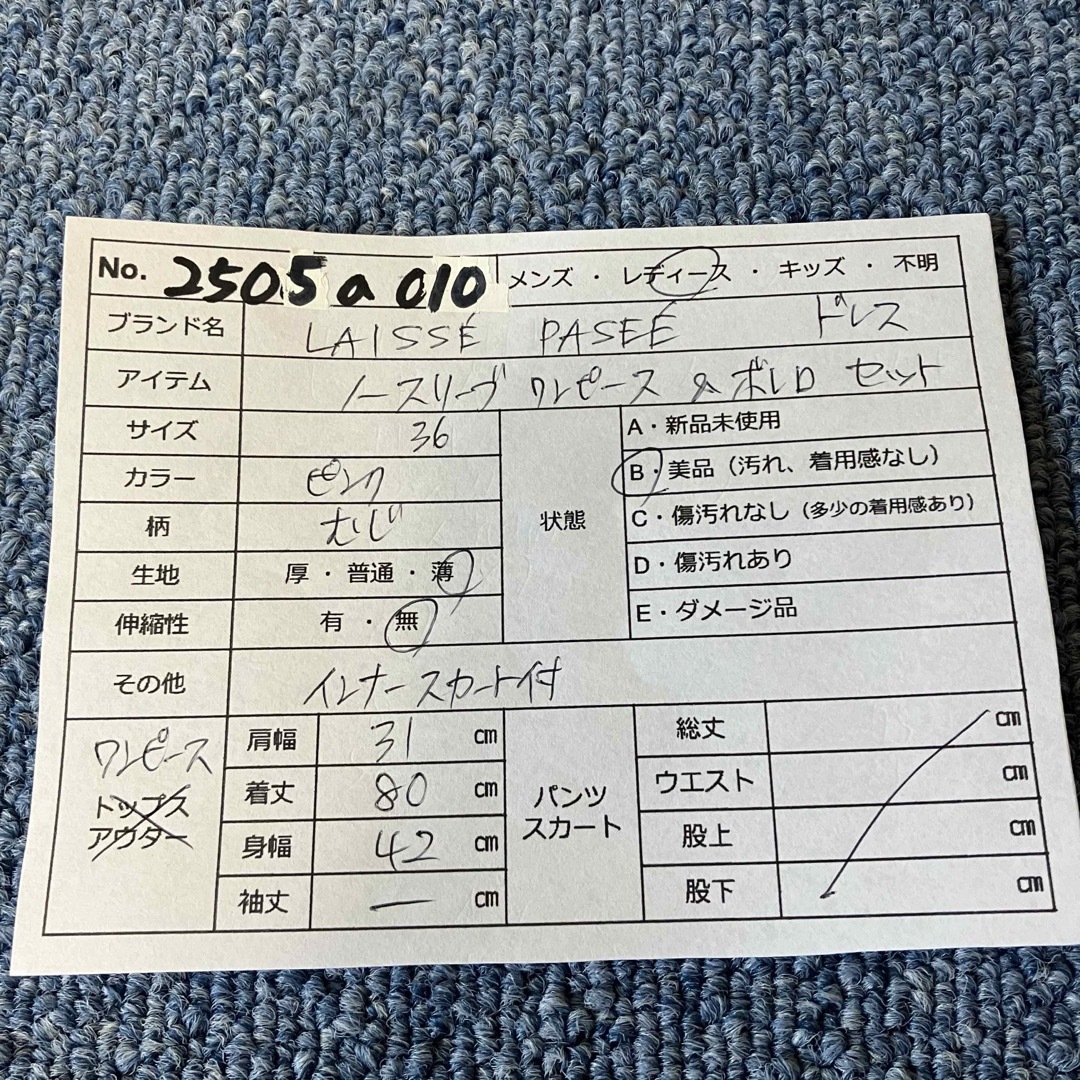 No. 2505a010 メンズ ・ レディース ・ キッズ ・ 不明
ブランド名 LAISSÉ PASEÉ ドレス
アイテム ノースリーブ ワンピース &ボレロ セット
サイズ 36
カラー ピンク
柄 むじ
生地 厚 ・ 普通 ・ 薄
伸縮性 有 ・ 無
状態
A・新品未使用
B・美品（汚れ、着用感なし）
C・傷汚れなし（多少の着用感あり）
D・傷汚れあり
E・ダメージ品
その他 インナースカート付
ワンピース
トップス
アウター
肩幅 31 cm
着丈 80 cm
身幅 42 cm
袖丈 ー cm
パンツ
スカート
総丈 cm
ウエスト cm
股上 cm
股下 cm